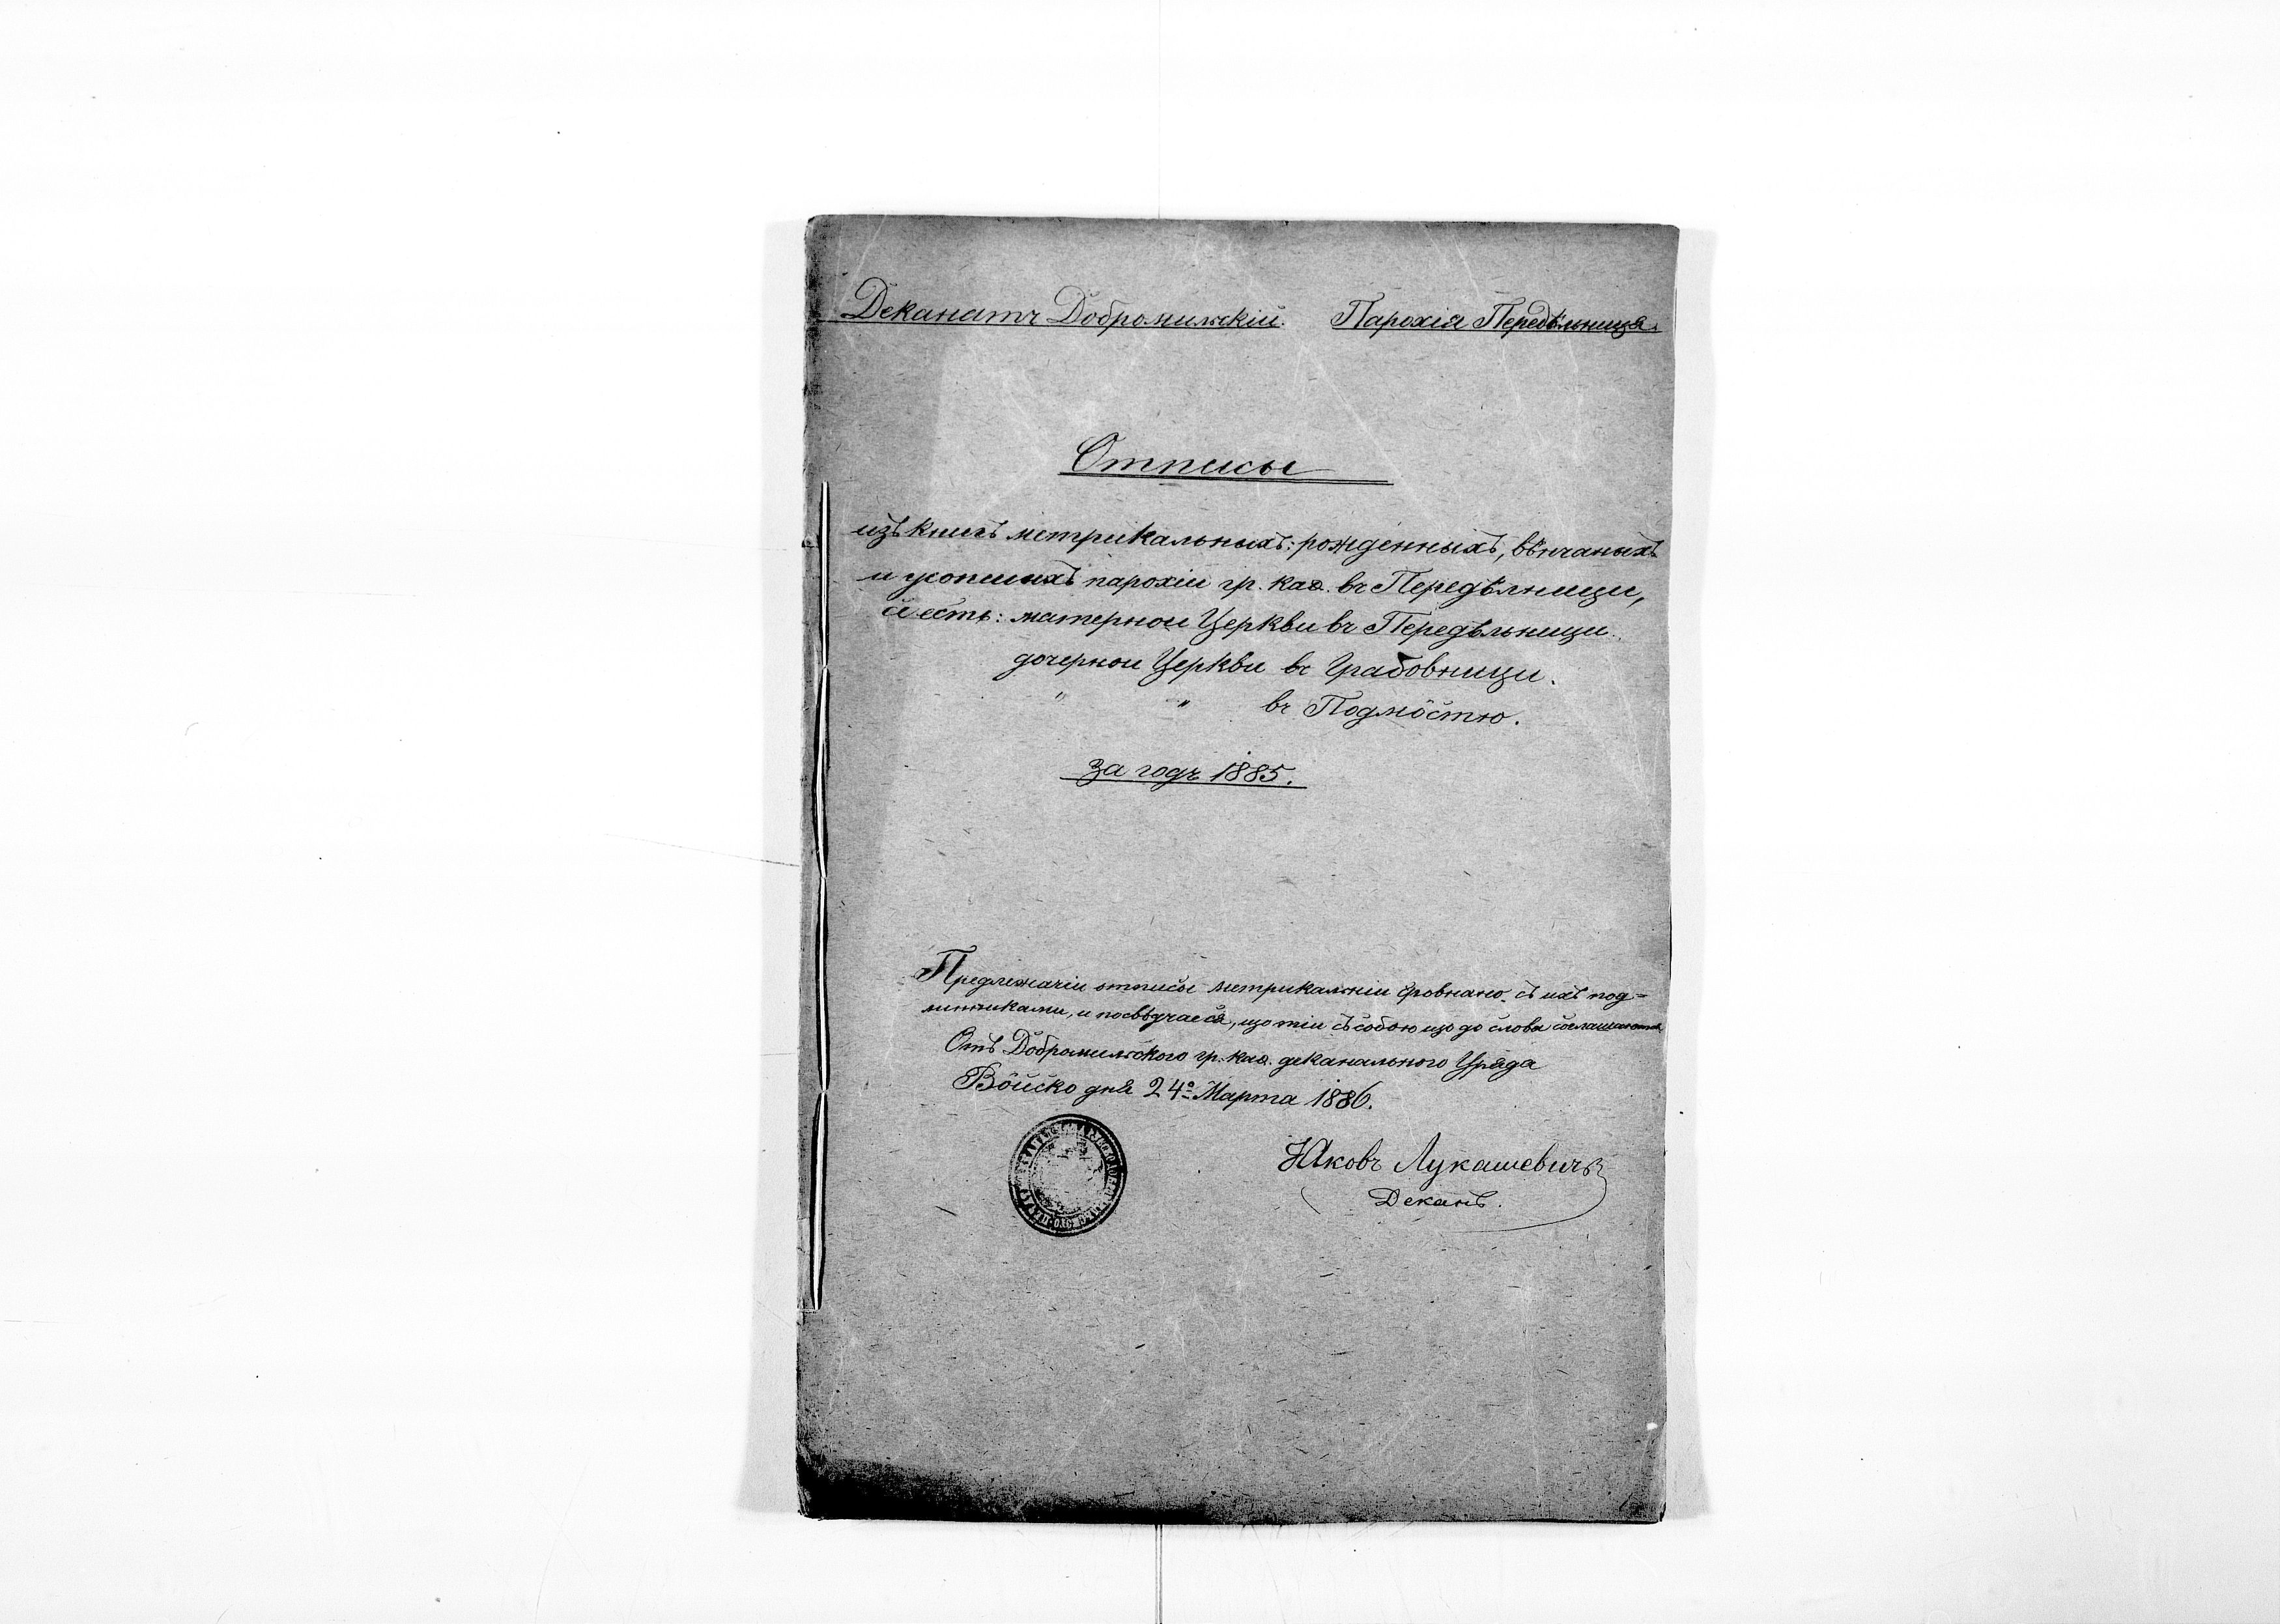 Деканатъ Добромильскій. Парохія Передѣльница.
Отписы
изъ книгъ метрикальныхъ: рожденныхъ, вѣнчаныхъ
и усопшихъ парохіи гр. каѳ. въ Передѣлници,
си есть: матерной Церкви въ Передѣльници.
дочерной Церкви въ Грабовници.
" " въ Подмôстю.
за годъ 1885.
Предлежачіи отписы метрикальніи зровнано съ ихъ под=
линниками, и посвѣдчаеся, що тіи съ собою що до слова соглашаются
Отъ Добромильского гр. каѳ. деканального Уряда
Вôйско дня 24º Марта 1886.
Яковъ Лукашевичъ
Деканъ.